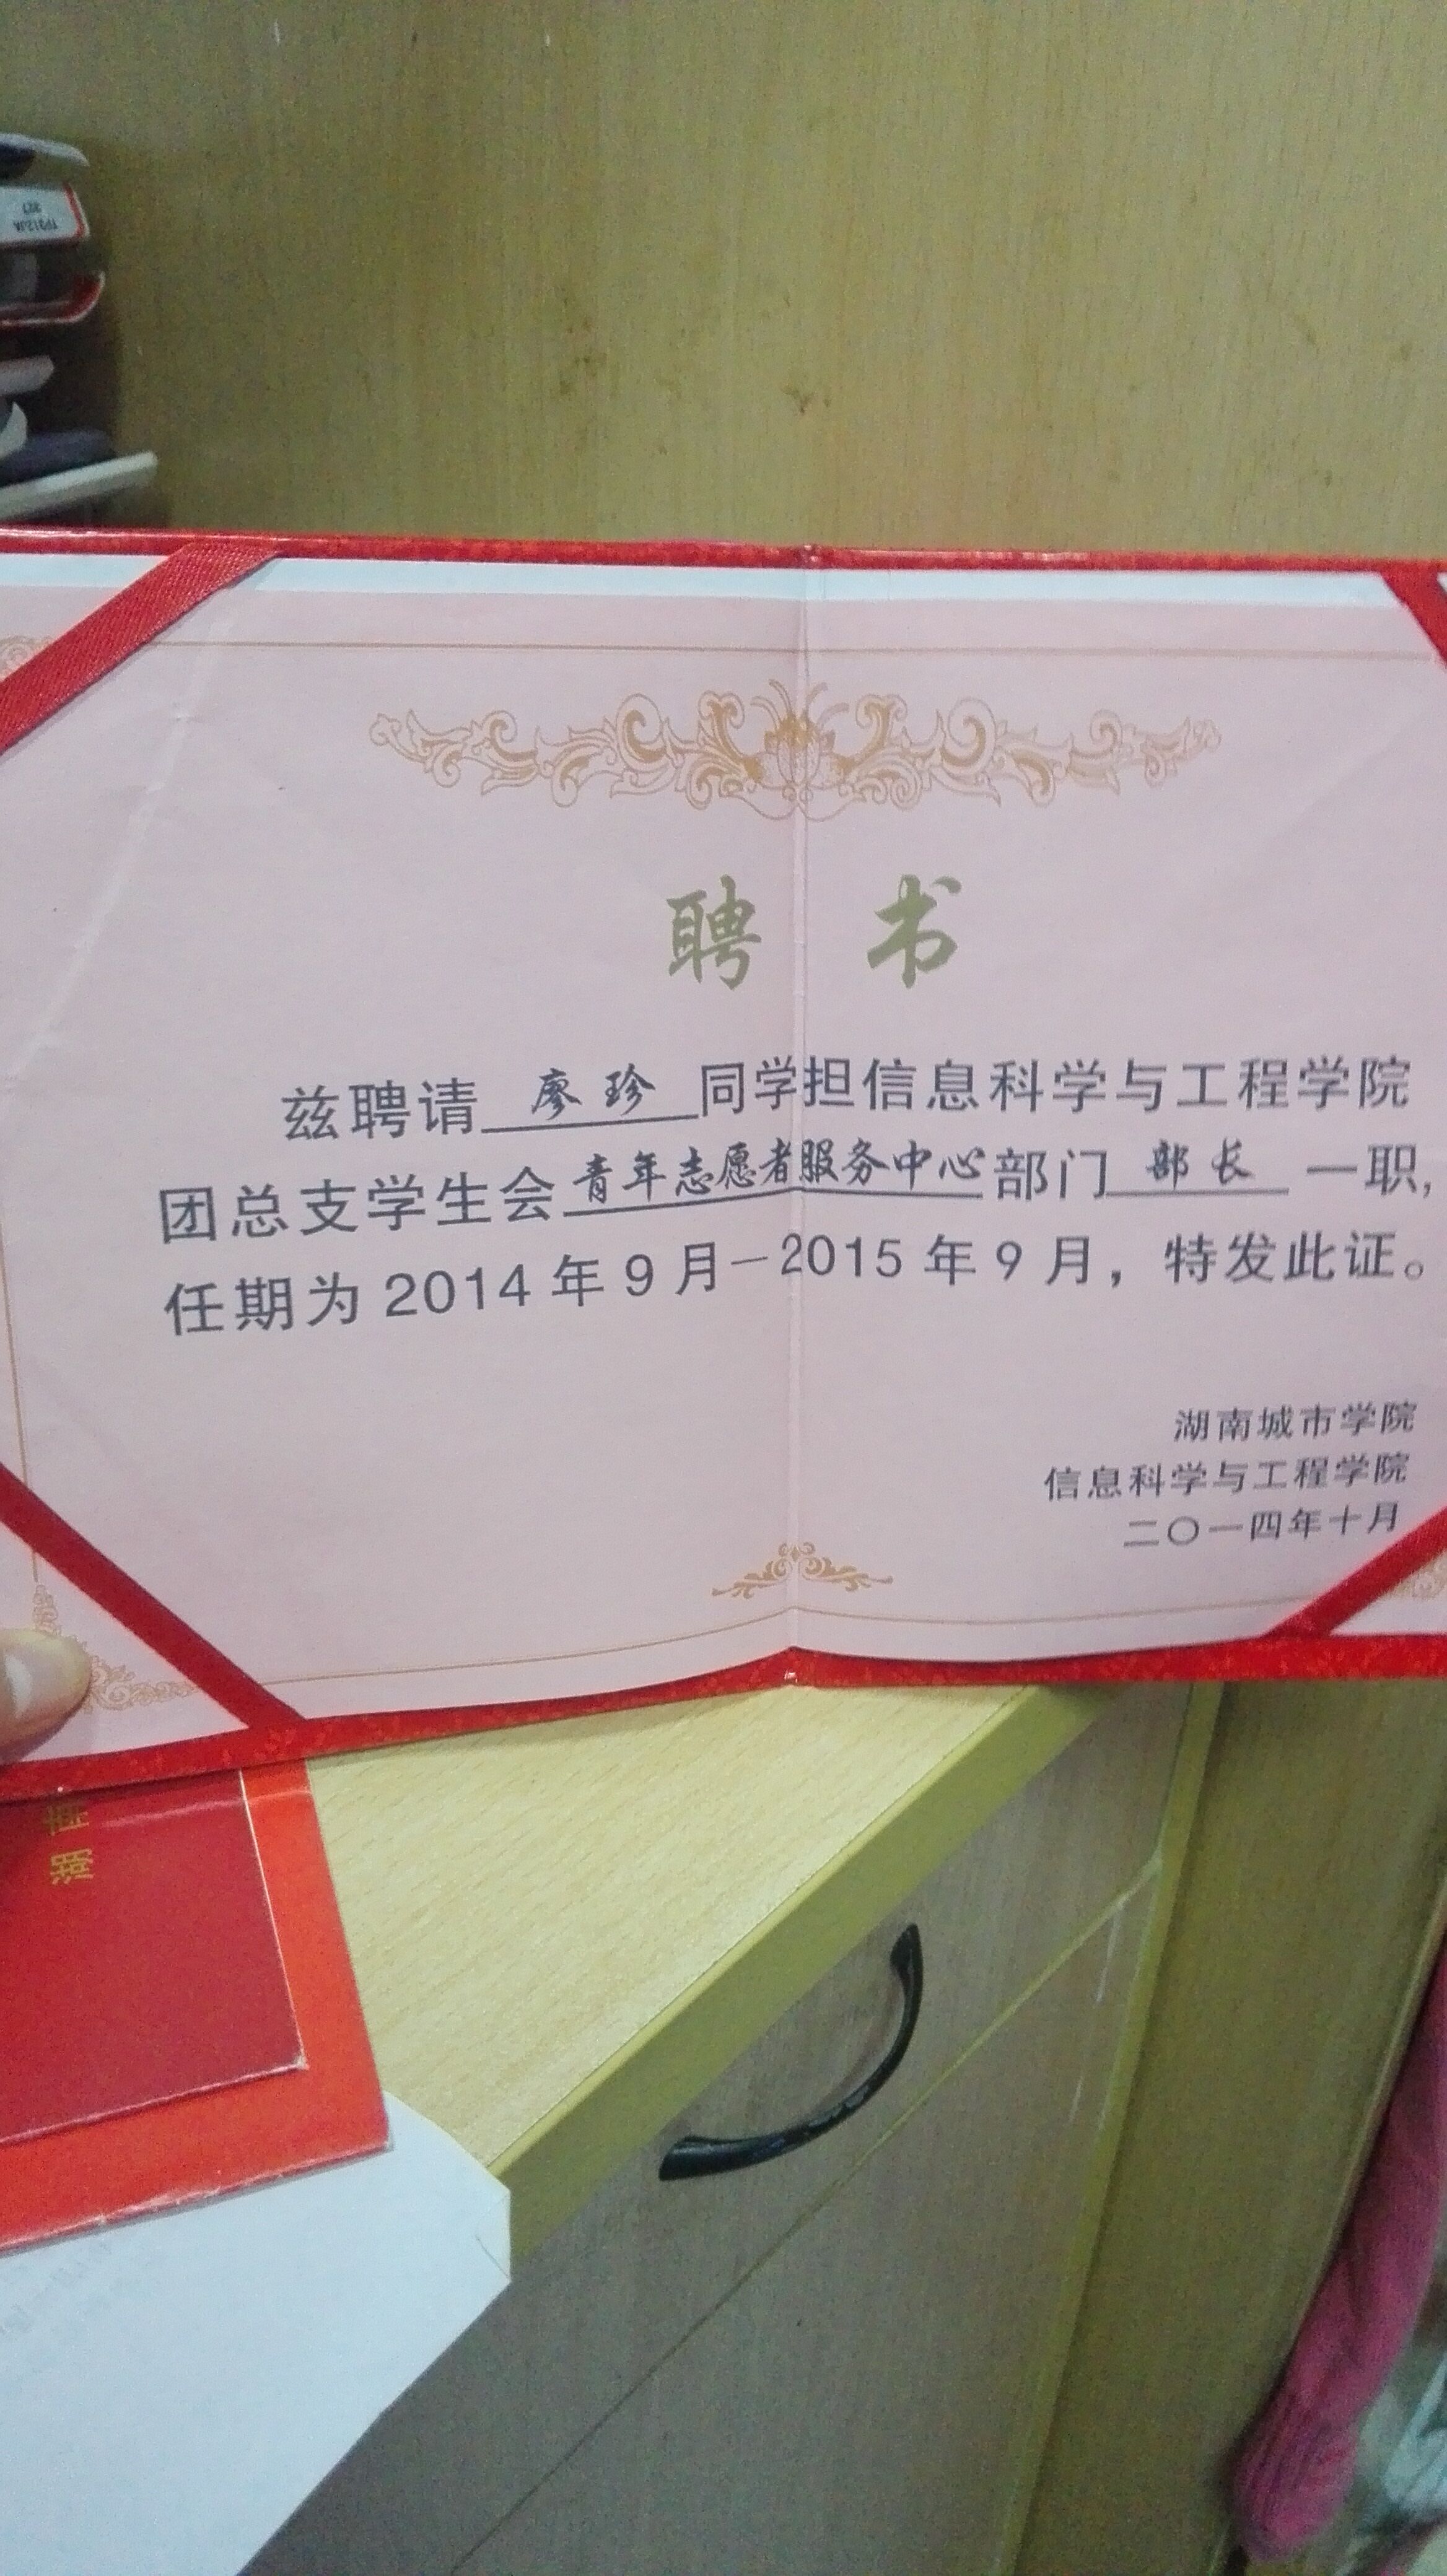 TP312JA
927
聘 书
兹聘请 廖珍 同学担信息科学与工程学院
团总支学生会青年志愿者服务中心部门 部长 一职,
任期为 2014 年 9 月－2015 年 9 月，特发此证。
湖南城市学院
信息科学与工程学院
二〇一四年十月
湖南